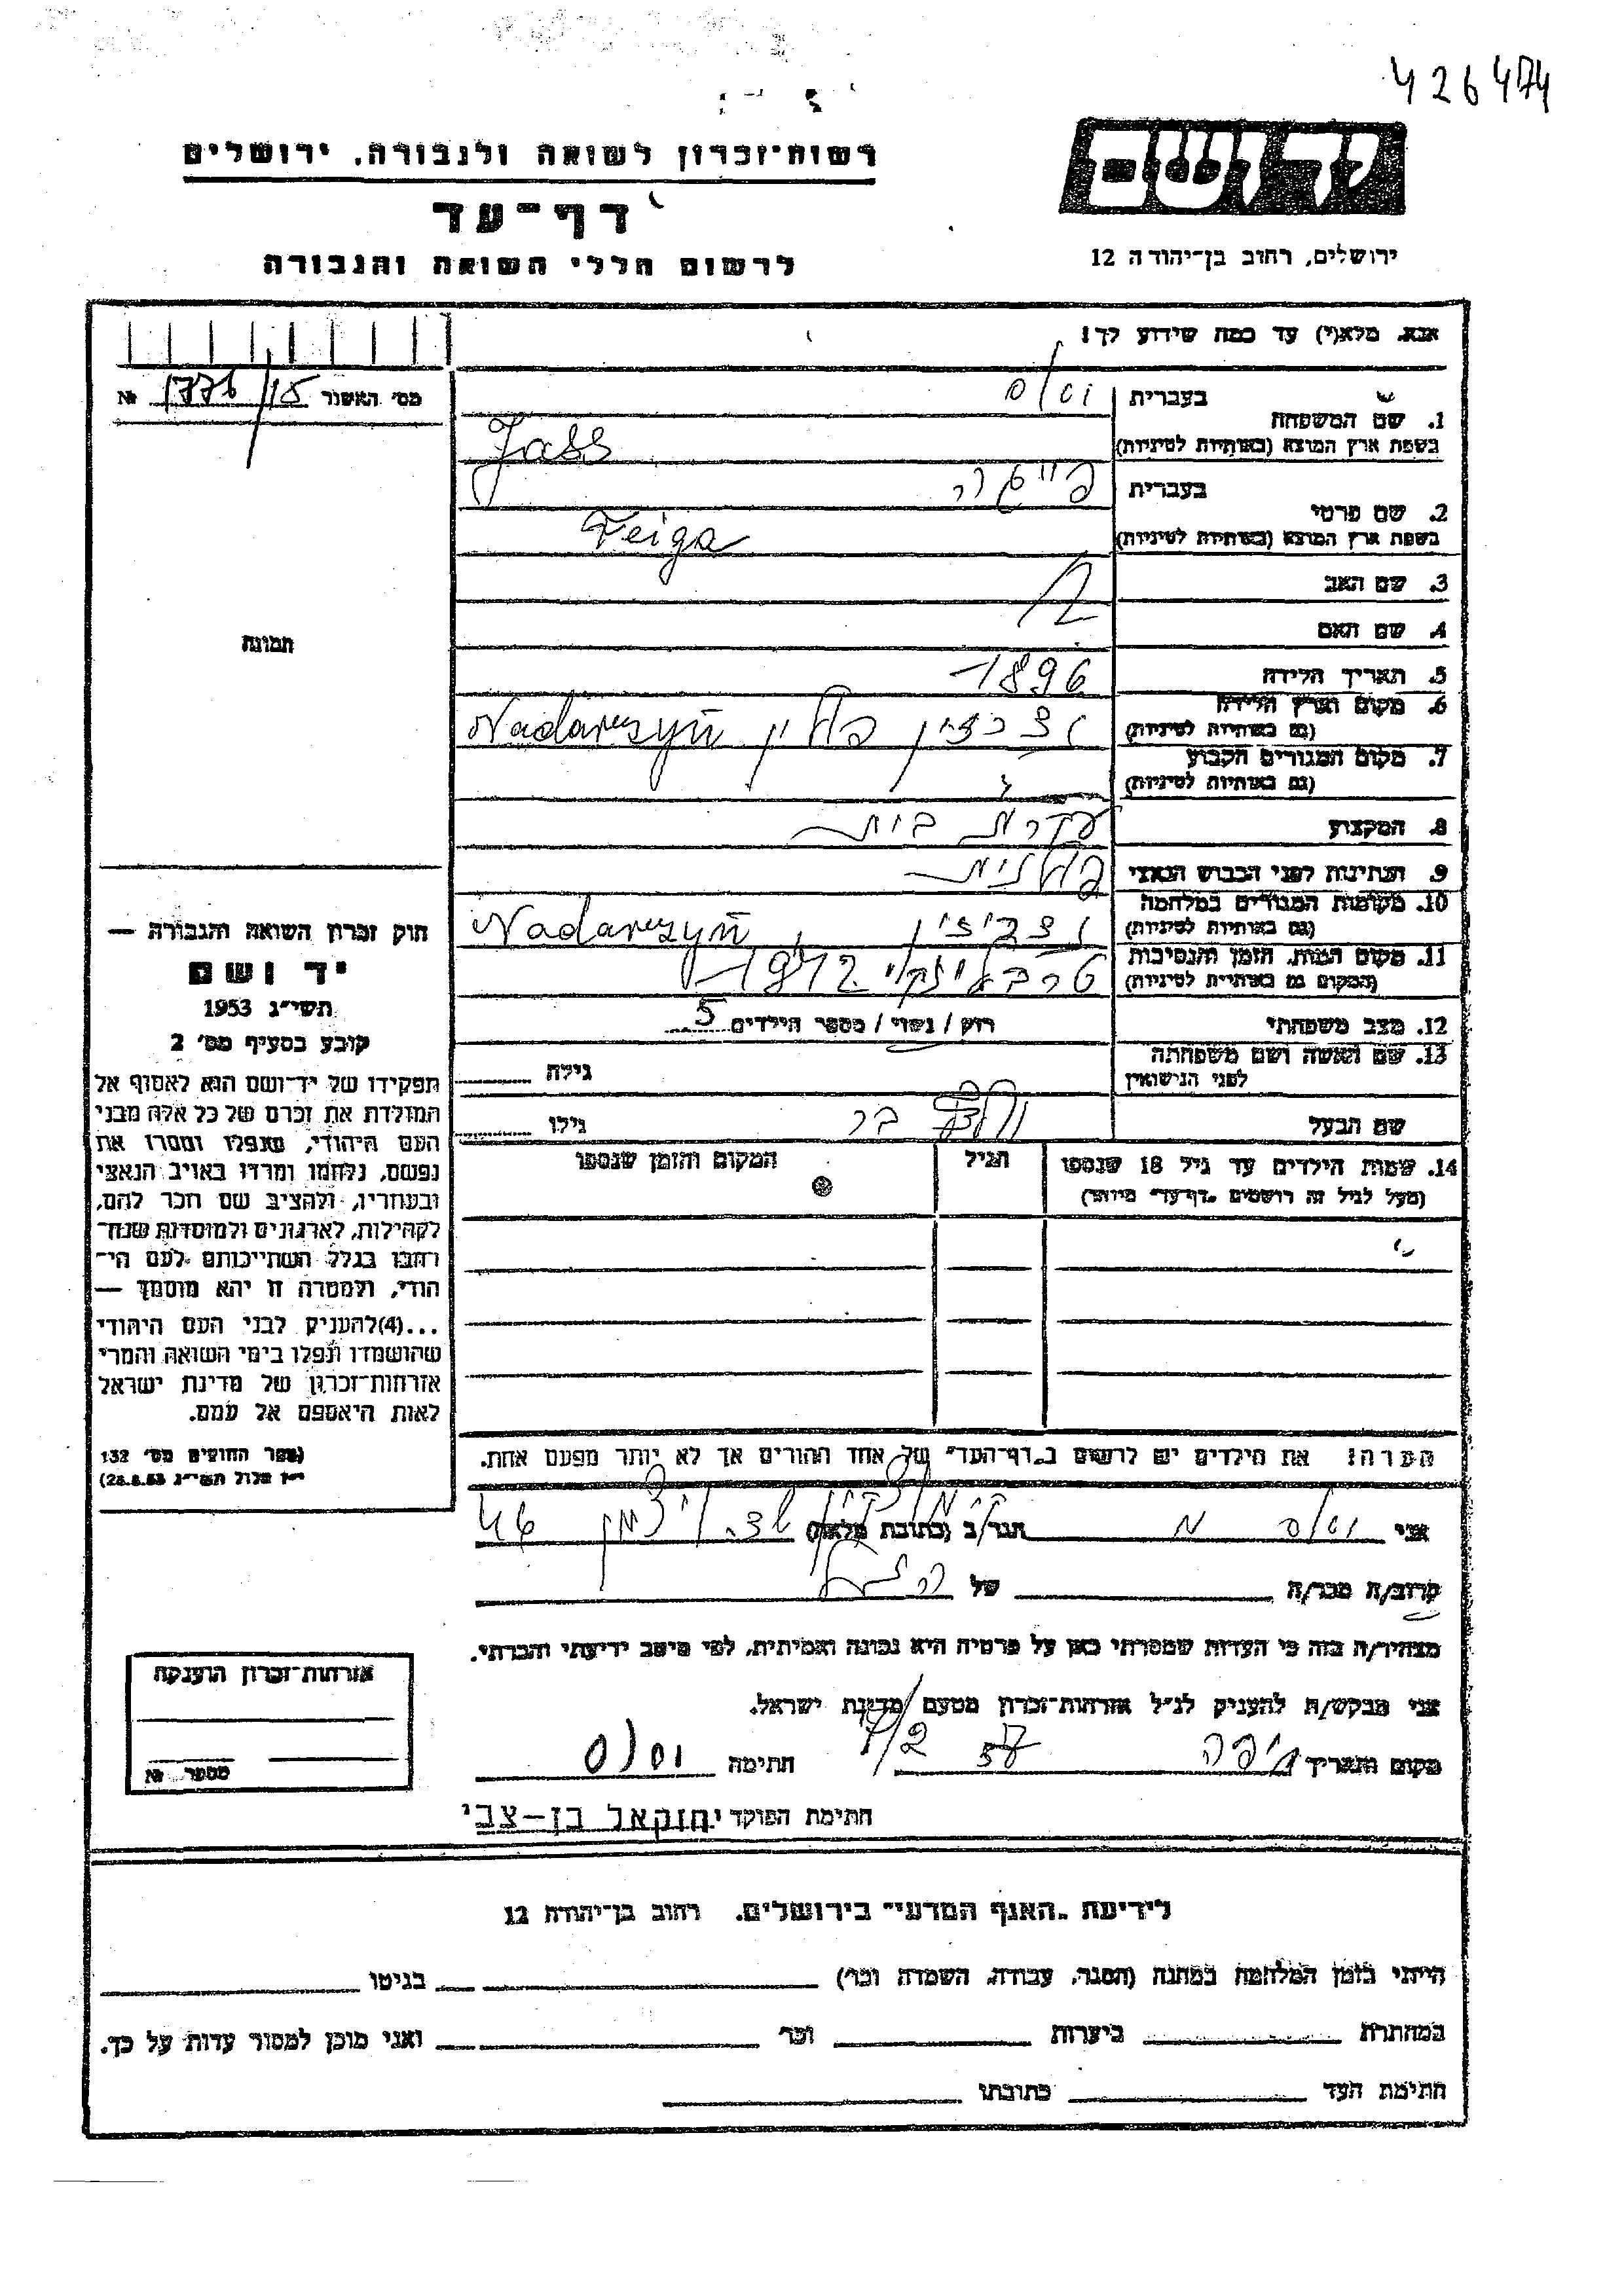 426474
רשות־זכרון לשואה ולגבורה, ירושלים
דף־עד
לרשום חללי השואה והגבורה
ידושם
ירושלים, רחוב בן־יהודה 12
אנא, מלא(י) עד כמה שידוע לך!
מס׳ האשור 1776/15 №
1. שם המשפחה
בעברית
בשפת ארץ המוצא (באותיות לטיניות) Jass
2. שם פרטי
בעברית פייגה
בשפת ארץ המוצא (באותיות לטיניות) Feiga
3. שם האב
4. שם האם
תמונה
5. תאריך הלידה 1896
6. מקום וארץ הלידה
(גם באותיות לטיניות) פולין Nadarzyń
7. מקום המגורים הקבוע
(גם באותיות לטיניות)
8. המקצוע עקרת בית
9. הנתינות לפני הכבוש הנאצי פולנית
10. מקומות המגורים במלחמה
(גם באותיות לטיניות) Nadarzyń
11. מקום המות, הזמן והנסיבות
(המקום גם באותיות לטיניות) טרבלינקי 1942
12. מצב משפחתי רווק / נשוי / מספר הילדים 5
13. שם האשה ושם משפחתה
לפני הנישואין גילה
שם הבעל גילו
14. שמות הילדים עד גיל 18 שנספו הגיל המקום והזמן שנספו
(מעל לגיל זה רושמים „דף־עד״ מיוחד)
חוק זכרון השואה והגבורה —
יד ושם
תשי״ג 1953
קובע בסעיף מס׳ 2
תפקידו של יד־ושם הוא לאסוף אל
המולדת את זכרם של כל אלה מבני
העם היהודי, שנפלו ומסרו את
נפשם, נלחמו ומרדו באויב הנאצי
ובעוזריו, ולהציב שם וזכר להם,
לקהילות, לארגונים ולמוסדות שנח־
רבו בגלל השתייכותם לעם הי־
הודי, ולמטרה זו יהא מוסמך —
...(4)להעניק לבני העם היהודי
שהושמדו ונפלו בימי השואה והמרי
אזרחות־זכרון של מדינת ישראל
לאות היאספם אל עמם.
(ספר החוקים מס׳ 132
י״ז אלול תשי״ג 28.8.53)
הערה! את הילדים יש לרשום ב„דף־העד״ של אחד ההורים אך לא יותר מפעם אחת.
אני הגר/ב (כתובת מלאה) 46
קרוב/ה מכר/ה של
מצהיר/ה בזה כי העדות שמסרתי כאן על פרטיה היא נכונה ואמיתית, לפי מיטב ידיעתי והכרתי.
אני מבקש/ת להעניק לנ״ל אזרחות־זכרון מטעם מדינת ישראל.
מקום ותאריך חיפה 57 חתימה
חתימת הפוקד יחזקאל בן-צבי
אזרחות־זכרון הוענקה
מספר №
לידיעת „האגף המדעי״ בירושלים. רחוב בן־יהודה 12
הייתי בזמן המלחמה במחנה (הסגר, עבודה, השמדה וכו׳) בגיטו
במחתרת ביערות וכו׳ ואני מוכן למסור עדות על כך.
חתימת העד כתובתו